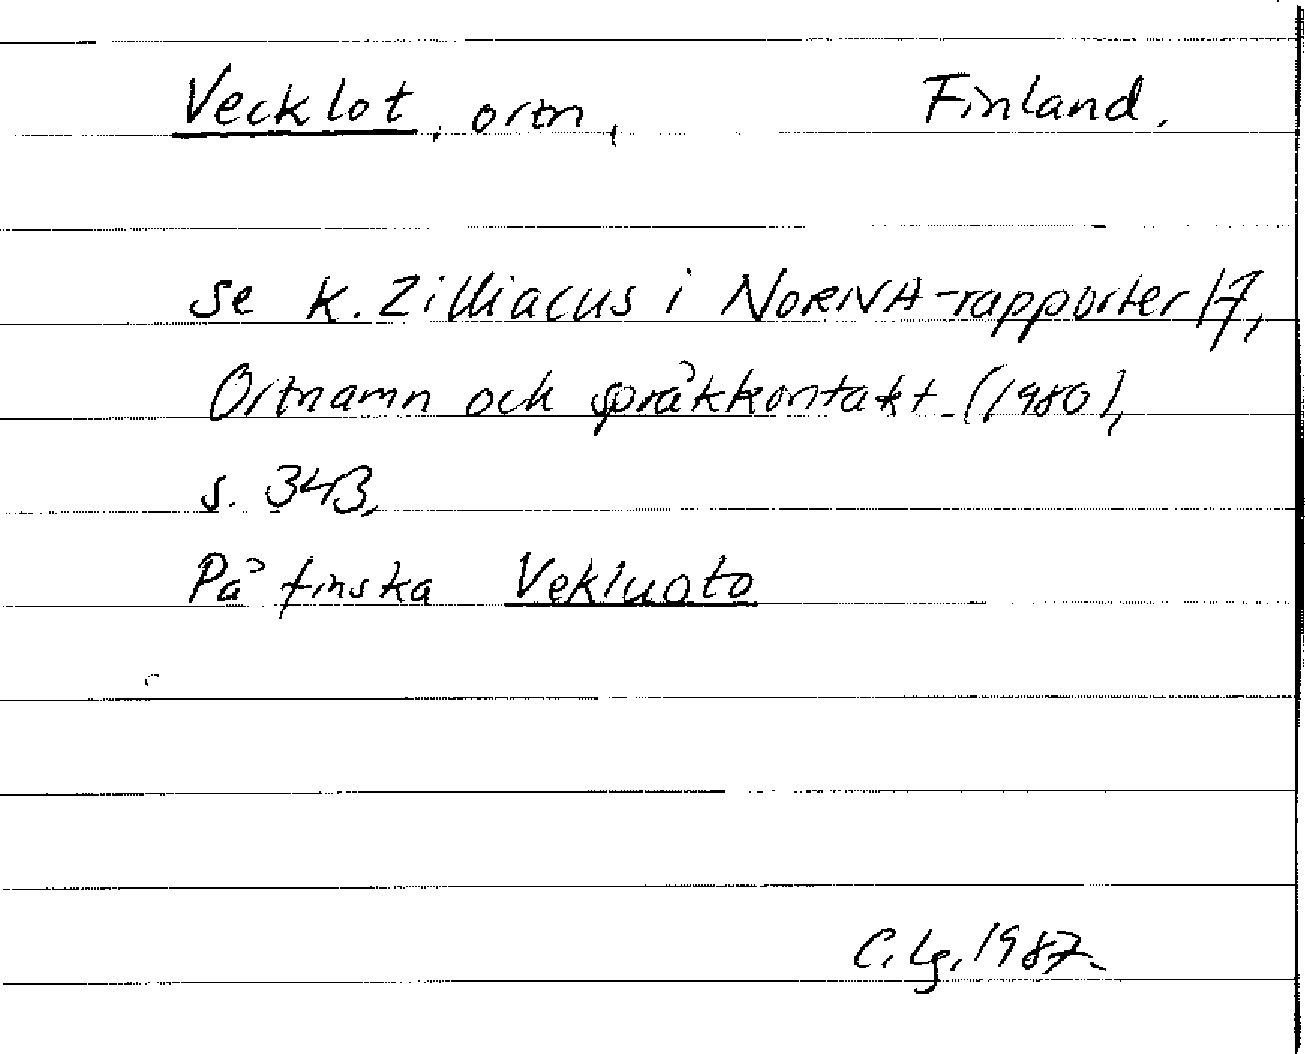 Vecklot, ortn, Finland.
se K. Zilliacus i NORNA-rapporter 17,
Ortnamn och språkkontakt (1980),
s. 343,
På finska Vekluoto
C. Lg. 1987.